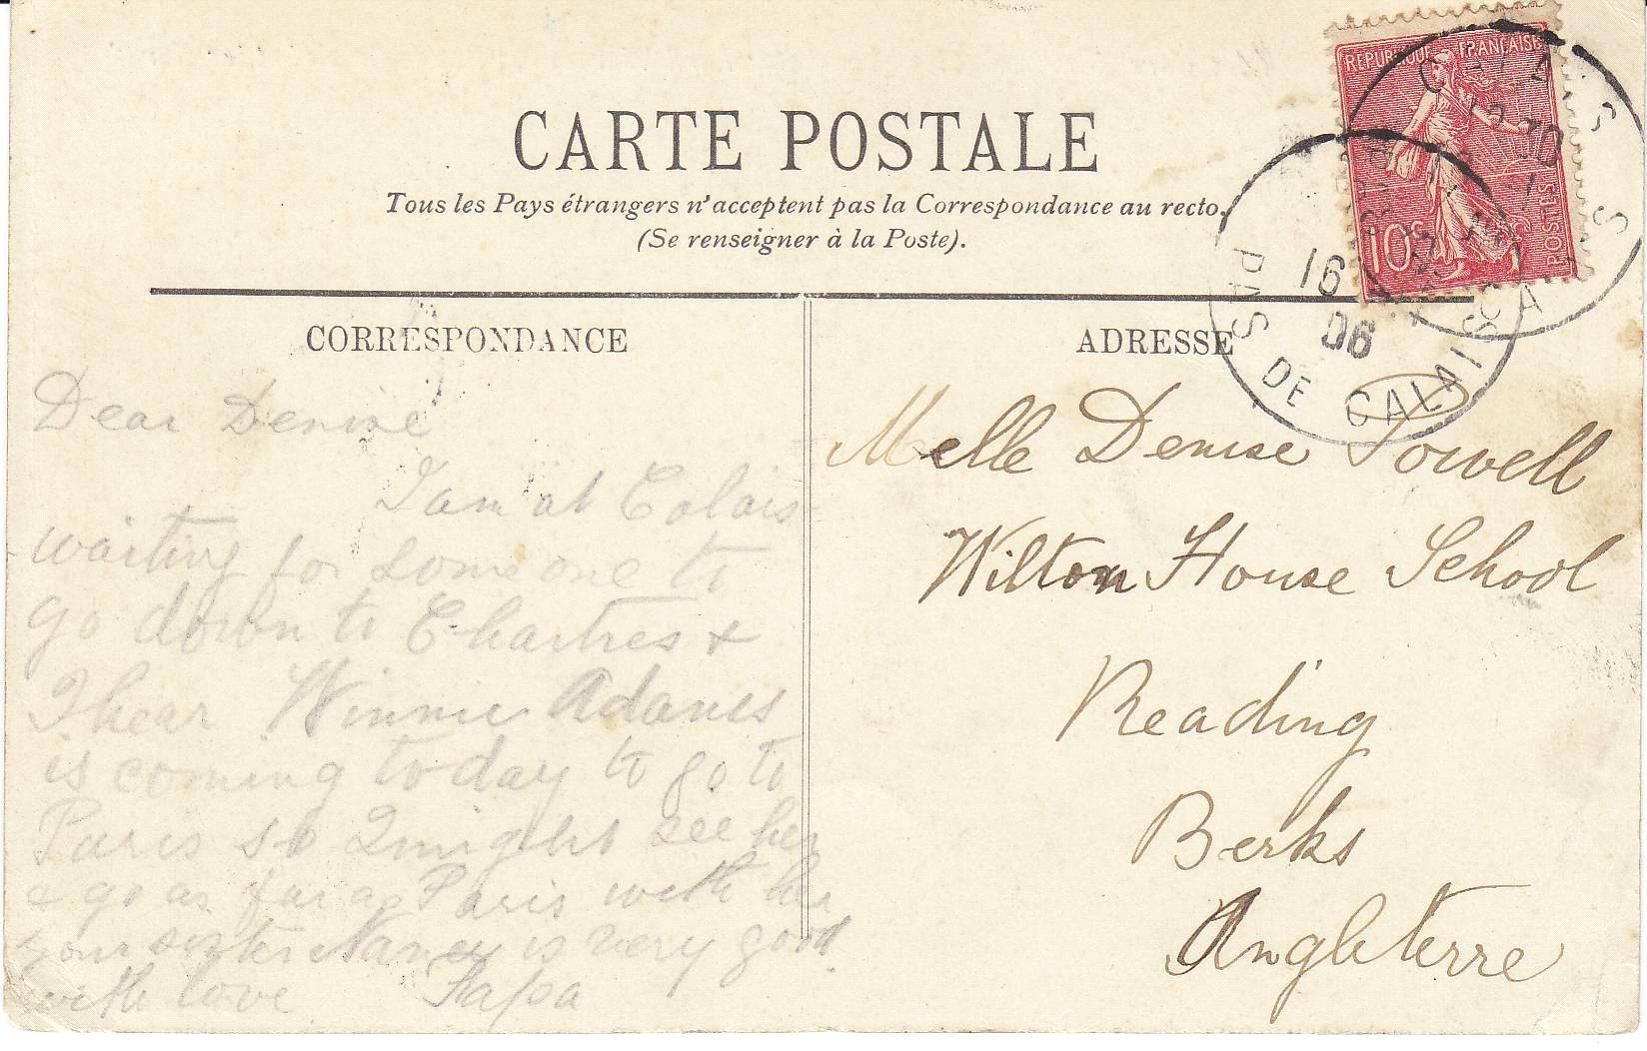 CARTE POSTALE
Tous les Pays étrangers n'acceptent pas la Correspondance au recto.
(Se renseigner à la Poste).
CORRESPONDANCE
Dear Denise
I am at Calais
waiting for some one to
go down to Chartres +
I hear Winnie Adames
is coming to day to go to
Paris so I might see her
& go as far as Paris with her
your sister Nancy is very good
with love Papa
ADRESSE
Melle Denise Powell
Wilton House School
Reading
Berks
Angleterre
REPUBLIQUE FRANÇAISE
10c
POSTES
CALAIS
12 30
16
06
PAS DE CALAIS